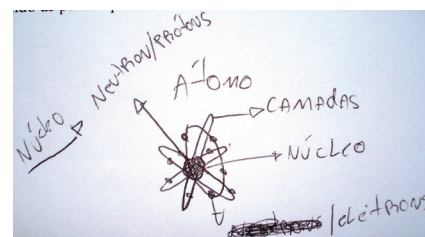 NÚCLEO
NEUTRON/PRÓTONS
ÁTOMO
CAMADAS
NÚCLEO
/ELÉTRONS